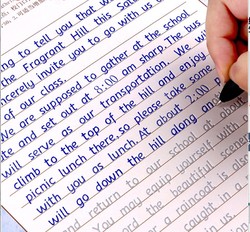 ng to tell you that w
the Fragrant Hill this Satu
ncerely invite you to go with us
of our class.
We are supposed to gather at the school
te and set out at 8:00 am sharp. The bus
will serve as our transportation. We wi
climb to the top of the hill and enjoy
picnic lunch there, so please take some
with you as lunch. At about 2:00 p
will go down the hill along an
nd return to our school at abo
You may equip yourself wi
rd the beautiful scene
er a raincoat is als
caught in a